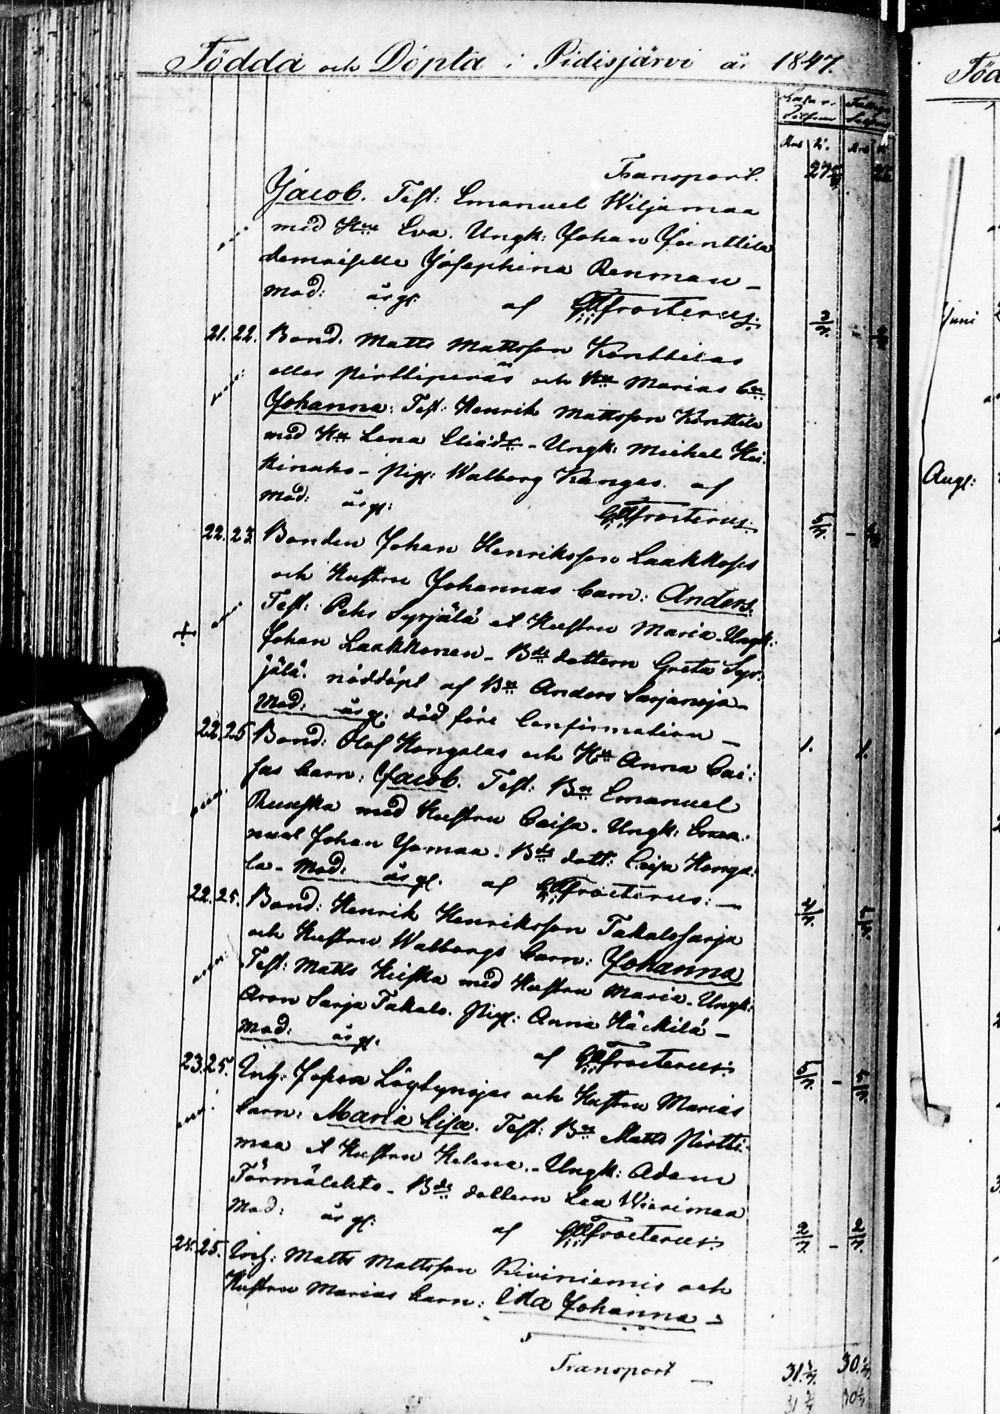 Födda och Döpta i Pidisjärvi år 1847.
Transport. 27
Jacob. Test: Emanuel Wiljamaa
med Hu Eva. Ungk: Johan Junttila
demoiselle Josephina Renman
Mod: år gl: af Frosterus.
21. 22. Bond. Matts Mattsson Konttilas
eller Pirttiperäs och Hu Marias bn
Johanna. Test: Henrik Mattsson Konttila
med Hu Lena Eliasdr - Ungk: Michel Hei:
kinaho - pig: Walborg Kangas. af
Mod: år gl: Frosterus.
22. 23. Bonden Johan Henriksson Laakkoses
och Hustru Johannas barn: Anders.
Test: Pehr Syrjälä et Hustru Maria. Ungk:
Johan Laakkonen - Bds dottern Greta Syr:
jälä. nöddöpt af Bn Anders Sarjanoja
Mod: år gl: död före Confirmation
22. 25. Bond: Olof Kangalas och Hu Anna Cai:
sas barn: Jacob. Test: Bn Emanuel
Ruuska med Hustru Caisa. Ungk:
Johan Jamaa. Bds dott: Caisa Kanga:
la - Mod: år gl. af Frosterus:
22. 25. Bond: Henrik Henriksson Takalosarja
och Hustru Walborgs barn: Johanna
Test: Matts Huiska med Hustru Maria. Ungk:
Aron Sarja Takalo. Pig: Anna Häckilä
Mod: år gl. af Frosterus:
23. 25. Inh: Löytynojas och Hustru Marias
barn: Maria Lisa. Test: Bn Matts Pirtti:
maa et Hustru Helena. Ungk: Adam
Törmälehto - Bds dottern Lea Wierimaa
Mod: år gl: af Frosterus:
24. 25. Inh: Matts Mattsson Kiviniemis och
Hustru Marias barn: Ida Johanna
Transport 31 30
Juni
Augs: